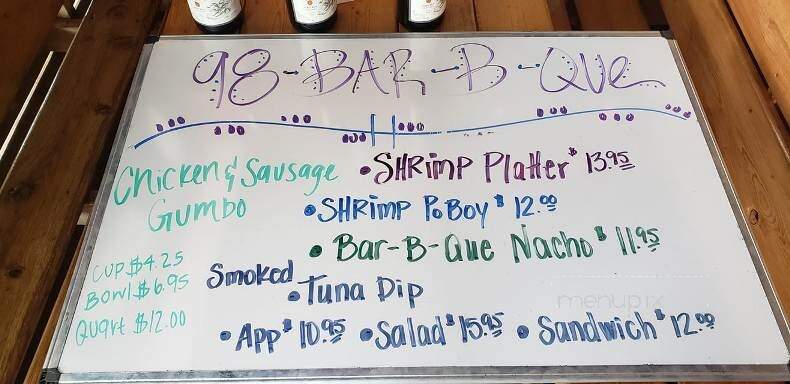 98-BAR-B-QUE
Chicken & Sausage
Gumbo
CUP $4.25
Bowl $6.95
Quart $12.00
• SHRIMP Platter $13.95
• SHRIMP PoBoy $12.00
• Bar-B-Que Nacho $11.95
Smoked
• Tuna Dip
• App $10.95 • Salad $15.95 • Sandwich $12.00
menupix